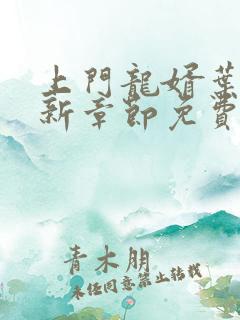 上門龍婿葉
新章節免費
青木朋
未經同意禁止轉載